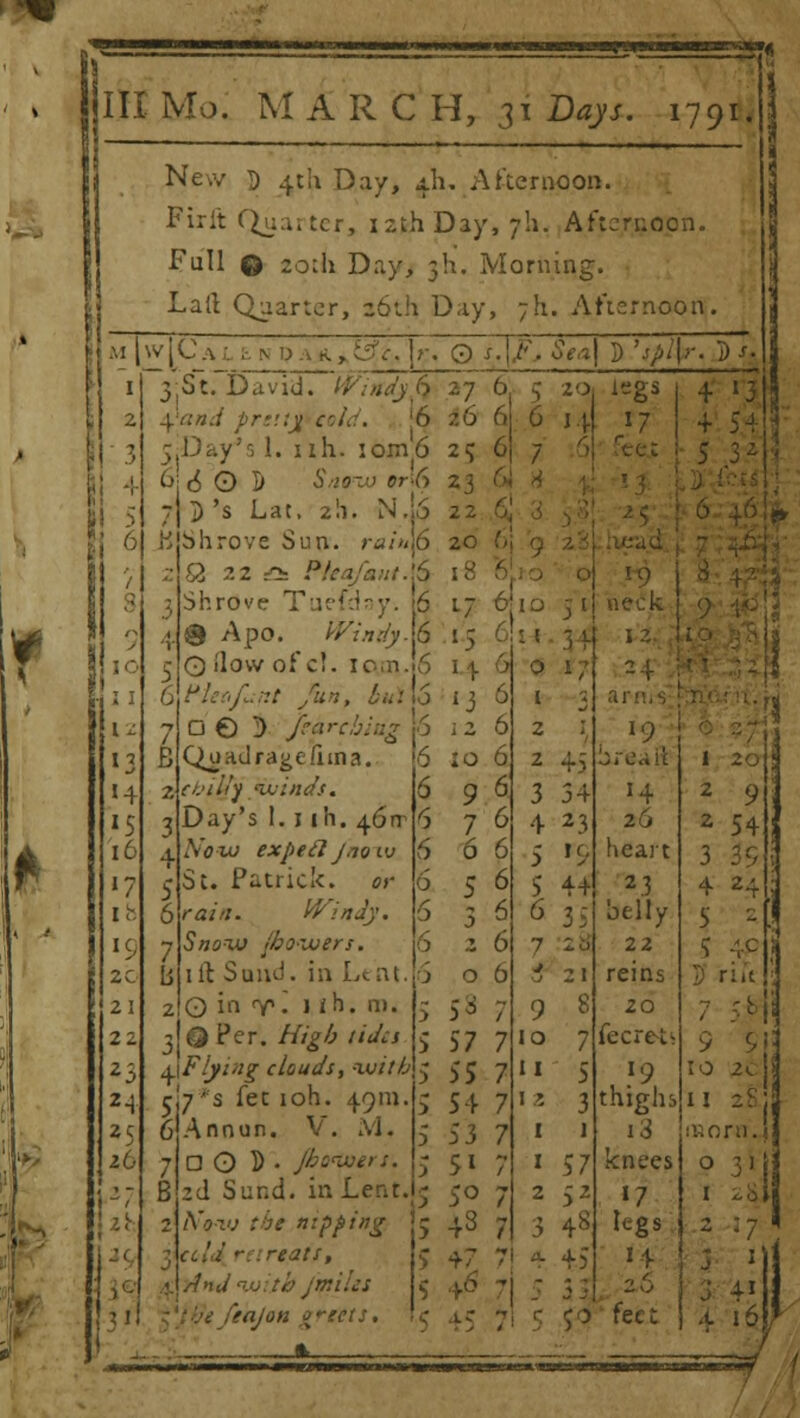 III Mo. MARCH, 31 Days. 1791.
New ☽ 4th Day, 4h. Afternoon.
Firſt Quarter, 12th Day, 7h. Afternoon.
Full ● 20th Day, 3h. Morning.
Laſt Quarter, 26th Day, 7h. Afternoon.
M | W | CALENDAR, &c. | r. ☉ s. | F. Sea | ☽'s pl | r. ☽ s.
1 3 St. David. Windy 6 27 6 5 20 legs 4 13
2 4 and pretty cold. 6 26 6 6 14 17 4 54
3 5 Day's l. 11h. 10m 6 25 6 7 6 feet 5 32
4 6 ☌ ☉ ☽ Snow or 6 23 6 8 13 ☽ ſets
5 7 ☽'s Lat. 2h. N. 6 22 6 8 58 25 6 46
6 B Shrove Sun. rain 6 20 6 9 28 head 7 46
7 2 ☊ 22 ♎ Pleaſant. 6 18 6 10 0 19 8 42
8 3 Shrove Tueſday. 6 17 6 10 51 neck 9 40
9 4 ● Apo. Windy. 6 15 6 11 34 12 10 38
10 5 ☉ ſlow of cl. 10m. 6 14 6 0 17 24 11 32
11 6 Pleaſant ſun, but 6 13 6 1 3 arms morn.
12 7 □ ☉ ☽ ſearching 6 12 6 2 1 19 0 27
13 B Quadrageſima. 6 10 6 2 45 breaſt 1 20
14 2 chilly winds. 6 9 6 3 34 14 2 9
15 3 Day's l. 11h. 46m 6 7 6 4 23 26 2 54
16 4 Now expect ſnow 6 6 6 5 19 heart 3 39
17 5 St. Patrick. or 6 5 6 5 44 23 4 24
18 6 rain. Windy. 6 3 6 6 35 belly 5 2
19 7 Snow ſhowers. 6 2 6 7 28 22 5 40
20 B 1ſt Sund. in Lent. 6 0 6 8 21 reins ☽ riſe
21 2 ☉ in ♈. 11h. m. 5 58 7 9 8 20 7 58
22 3 ● Per. High tides 5 57 7 10 7 ſecrets 9 9
23 4 Flying clouds, with 5 55 7 11 5 19 10 20
24 5 7*s ſet 10h. 49m. 5 54 7 12 3 thighs 11 28
25 6 Annun. V. M. 5 53 7 1 1 18 morn.
26 7 □ ☉ ☽. ſhowers. 5 51 7 1 57 knees 0 31
27 B 2d Sund. in Lent. 5 50 7 2 52 17 1 28
28 2 Now the nipping 5 48 7 3 48 legs 2 17
29 3 cold retreats, 5 47 7 4 45 14 3 1
30 4 And with ſmiles 5 46 7 5 33 26 3 41
31 5 the ſeaſon greets. 5 45 7 5 50 feet 4 16